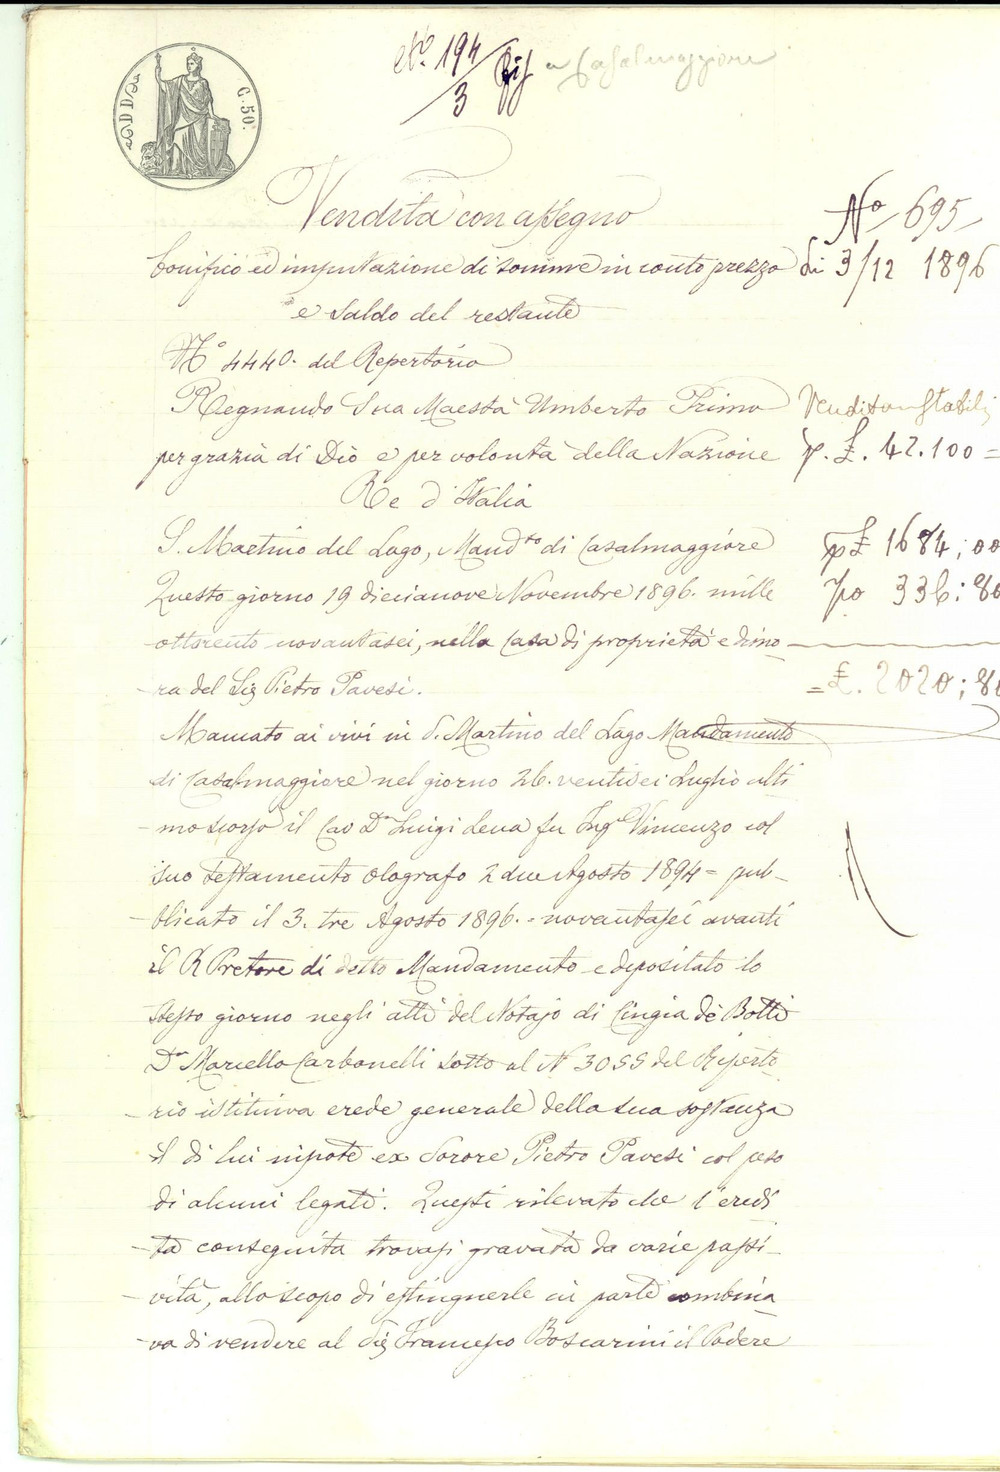 N.º 194
3
a Casalmaggiore
DD
C. 50.
Vendita con assegno
bonifico ed imputazione di somme in conto prezzo
e saldo del restante
N.º 695
di 3/12 1896
Nº 4440. del Repertorio
Regnando Sua Maestà Umberto Primo
per grazia di Dio e per volontà della Nazione
Re d'Italia
Vendita Stabili
p. £. 42.100 =
S. Martino del Lago, Mandto di Casalmaggiore
Questo giorno 19 diecianove Novembre 1896. mille
ottocento novantasei, nella Casa di proprietà e dimo
-ra del Sig Pietro Pavesi.
p £ 1684; 00
po 336: 80
= £. 2020; 80
Mancato ai vivi in S. Martino del Lago Mandamento
di Casalmaggiore nel giorno 26. ventisei Luglio ulti
-mo scorso il Cav Dr Luigi Lena fu Ingre Vincenzo col
suo testamento olografo 2 due Agosto 1894 = pub-
-blicato il 3. tre Agosto 1896. = novantasei avanti
il R Pretore di detto Mandamento e depositato lo
stesso giorno negli atti del Notajo di Cingia de Botti
Dr Marcello Carbonelli sotto al N 3055 del Reperto
-rio istituiva erede generale della sua sostanza
il di lui nipote ex Sorore Pietro Pavesi col peso
di alcuni legati. Questi rilevato che l'eredi
-tà conseguita trovasi gravata da varie passi-
-vità, allo scopo di estinguerle in parte combina
-va di vendere al Sig Francesco Boscarini il Podere